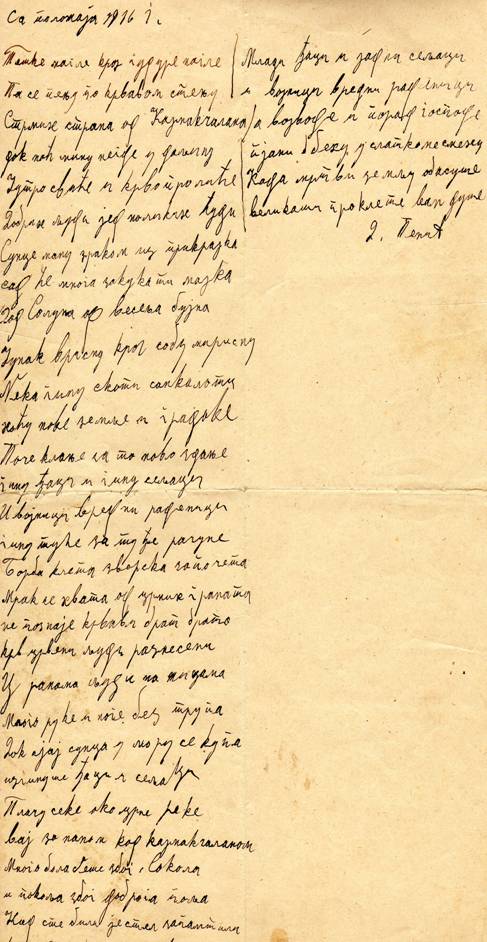 Са положаја 1916 г.
Тешке магле кроз
Па се пењу по крвавом стењу
Стрмих страна од Кајмакчалана
док ноћ мину неиде у долину
Јутро свиће и крвопролиће
Добрих људи јед
Сунце ману зраком из прикрајка
сад ће многа закукати мајка
Код Солуна од весеља бујна
Јунак врисну кроз собу мирисну
Нека гину скоти
хоћу нове земље и градове
Поче клање за то ново здање
гину ђаци и гину сељаци
И војници вредни раденици
гину туђе за туђе рачуне
Борба клета зверска започета
Мрак се хвата од црних граната
не познаје крвав брат брата
крв црвени људи разнесени
У ранама људи на жицама
Много руке и ноге без трупа
Док сјај сунца у мору се купа
изгинуше ђаци и сељаци
Плачу секе око црне реке
вај за паном код Кајмакчаланом
Много бола беше због Сокола
и покоља због Доброга поља
Кад сте били јесте л запамтили
Млади ђаци и јадни сељаци
и војници вредни раденици
а војводе и поред господе
пјани беху у слаткоме смеху
Када мртви земљу обасуше
великаши проклете вам душе